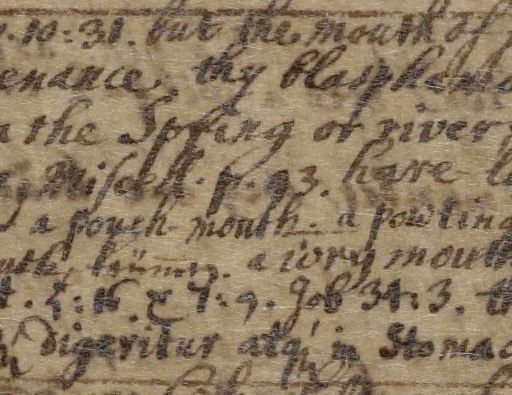 . 10: 31. but the mouth of
enance. thy blasphem
the Spring or river
Miscell. p. 93. have
a pouch mouth. a powting
a wry mouth
Job 34: 3. th
digeritur atq; in Stomac